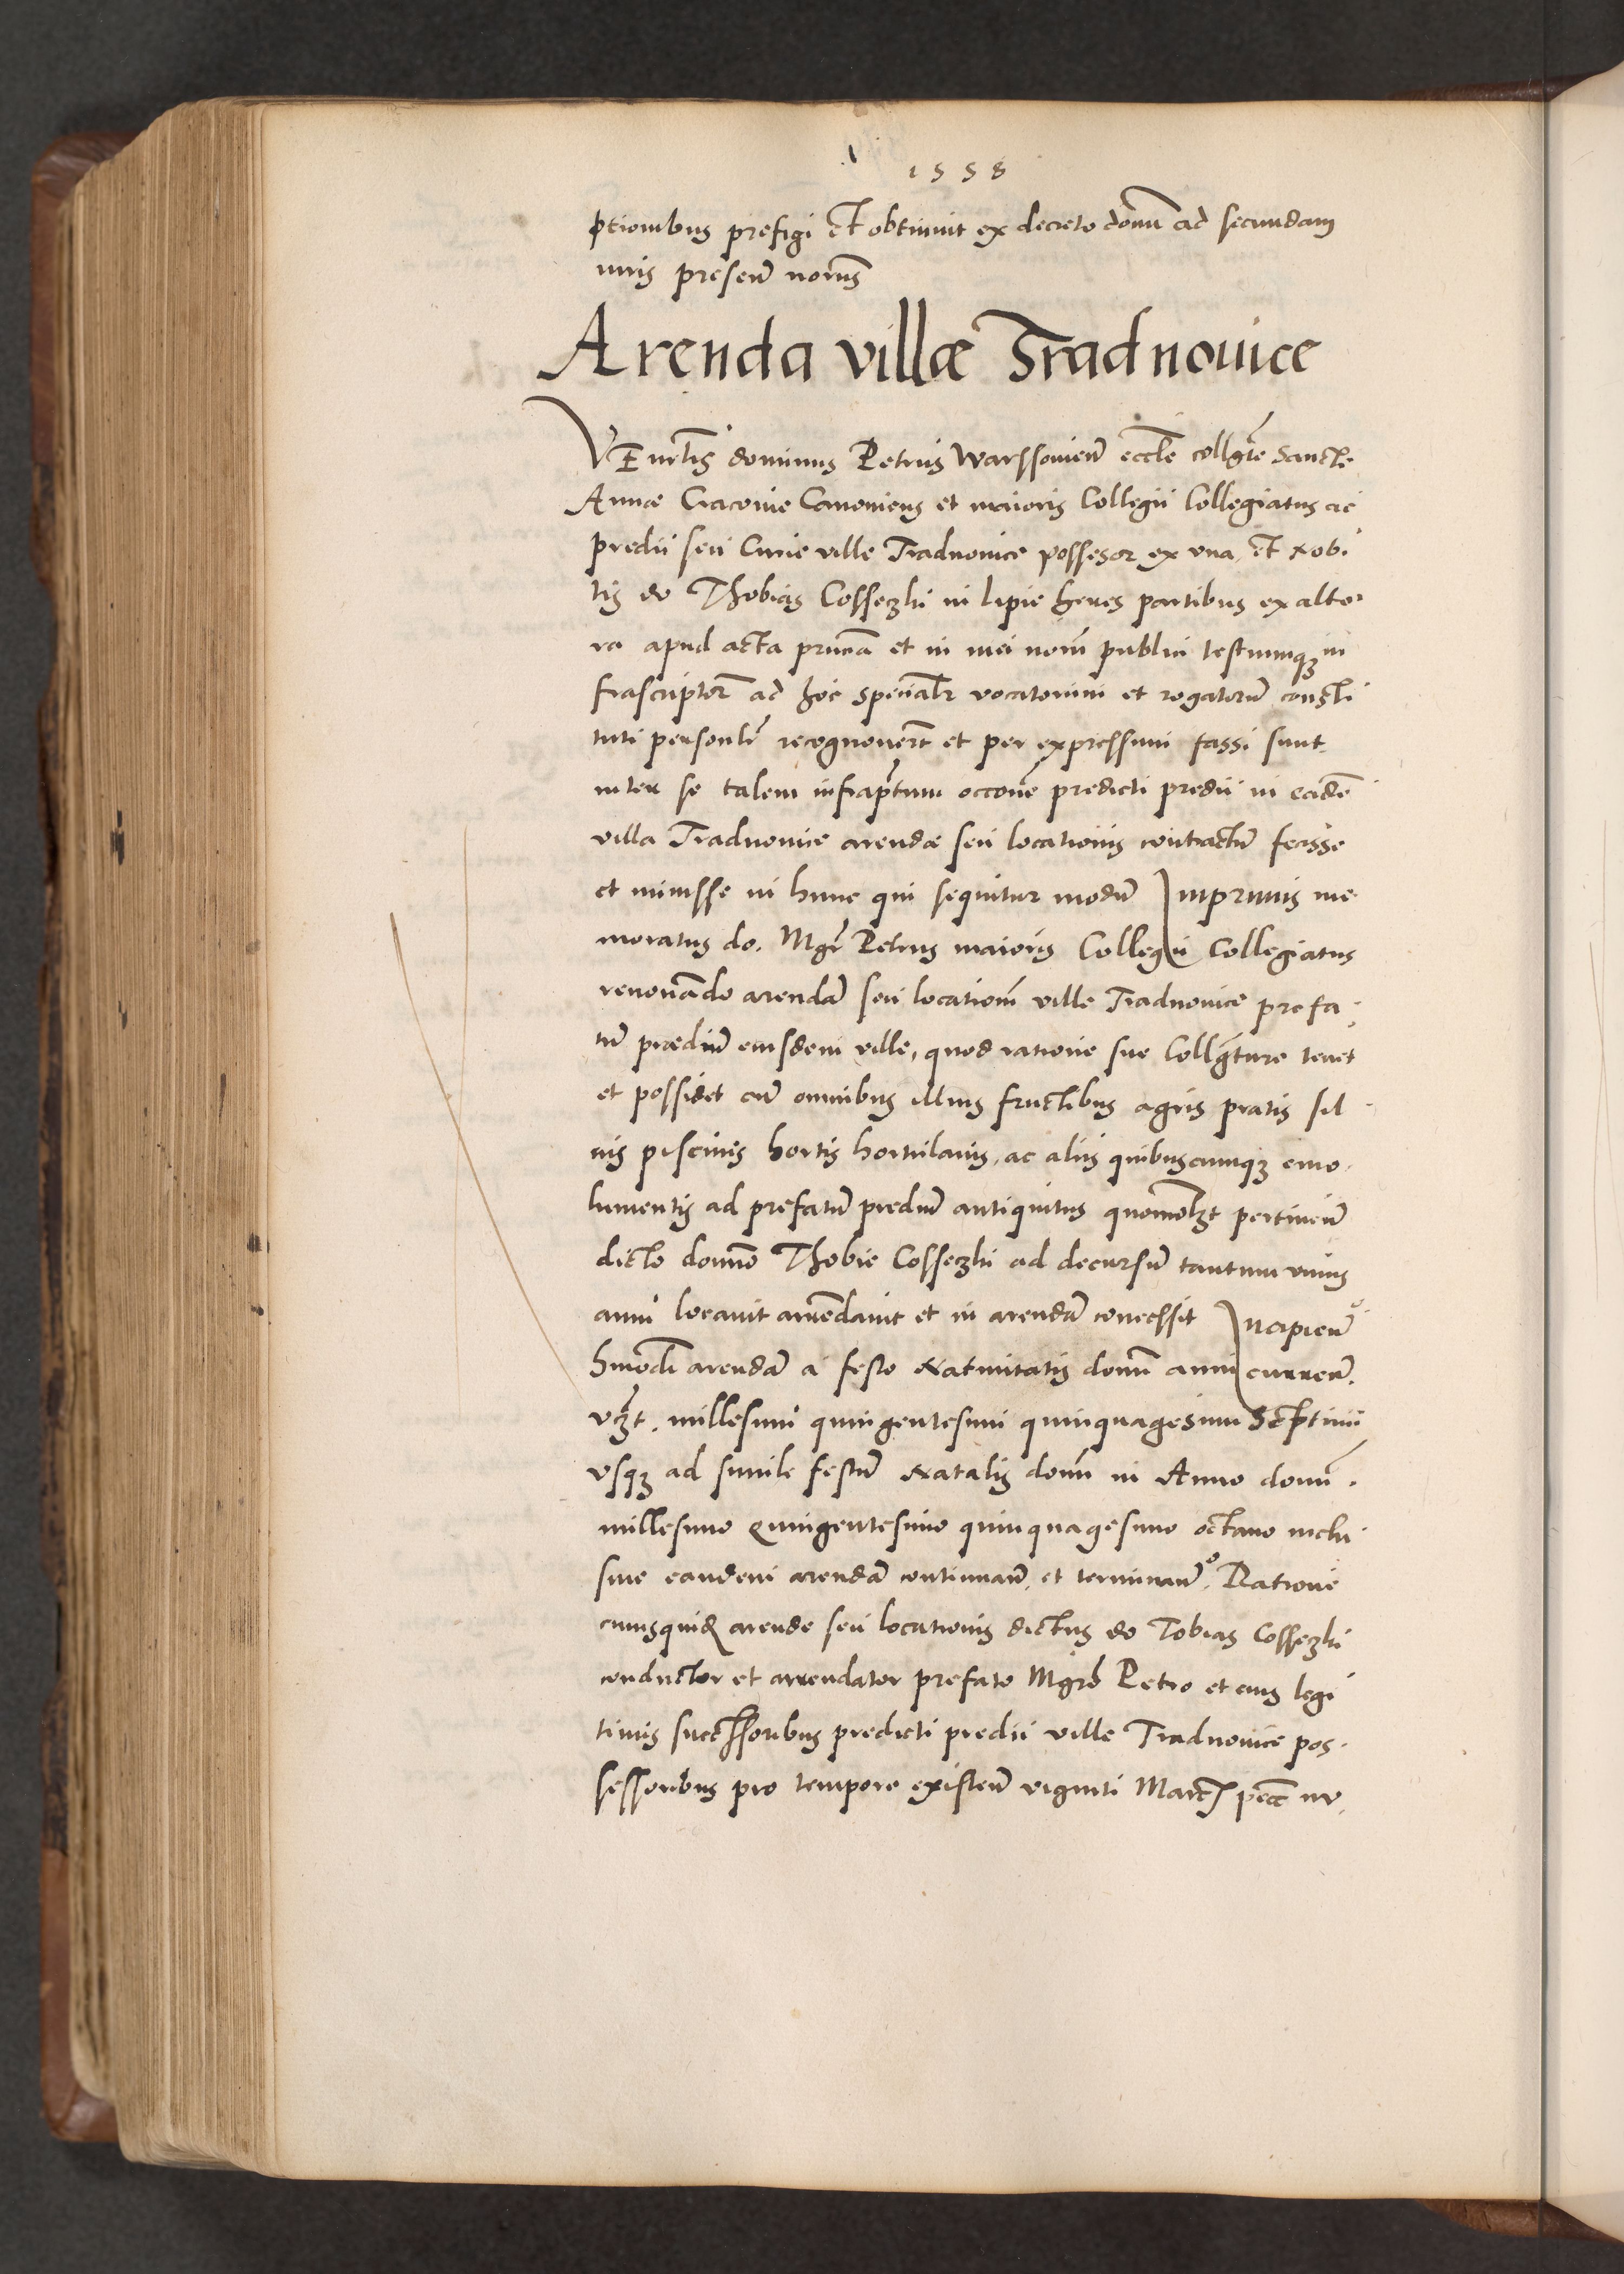 1558
ptionibus prefigi Et obtinuit ex decreto domi ad secundam
iuris presen̄ norūs
Arenda villæ Tradnouice
VEnrlis dominus Petrus Warssouien̄ eccle collgte Sancte
Annæ Cracouie Canonicus et maioris Collegii Collegiatus ac
predii seu Curie ville Tradnouice possesor ex vna, Et Nobi
lis do Thobias Cosseczki in Lipie heres partibus ex alte
ra apud acta pñtia et in mei noṝ publici testiumq3 in
frascriptor̄ ad hoc specialr̄ vocatorum et rogatorū consti
tuti personlr̄ recognouerт et per expressum fassi sunt
inter se talem infrap̄tum occoñe predicti predii in eadē
villa Tradnouice arendæ seu locationis contractū fecisse
et iniuisse in hunc qui sequitur modū Inprimis me
moratus do. Mgr̄ Petrus maioris Collegii Collegiatus
renouādo arendā seu locationē ville Tradnouice prefa
tū prædiū eiusdem ville, quod ratione sue Collgature tenet
et possidet cū omnibus illius fructibus agris pratis sil
uis piscinis hortis hortulanis, ac aliis quibuscumq3 emo
lumentis ad prefatū prediū antiquitus quomolȝt pertinen̄
dicto domno Thobie Cosseczki ad decursū tantum vnius
anni locauit arrēdauit et in arendā concessit Incipien̄o
hmōdi arendā a festo Natiuitatis domi anni curren̄.
vȝt. millesimi quingentesimi quinquagesimi Septimi
vsq3 ad simile festū Natalis domi in Anno domi.
millesimo Quingentesimo quinquagesimo octauo inclu
siue eandem arendā continuan̄. et terminan̄o. Ratione
cuiusquid arende seu locationis dictus do Tobias Cosseczki
conductor et arrendator prefato Mgr̄o Petro et eius legi
timis successoribus predicti predii ville Tradnouice pos
sessoribus pro tempore existen̄ viginti Marc̄ pecc̄ nu